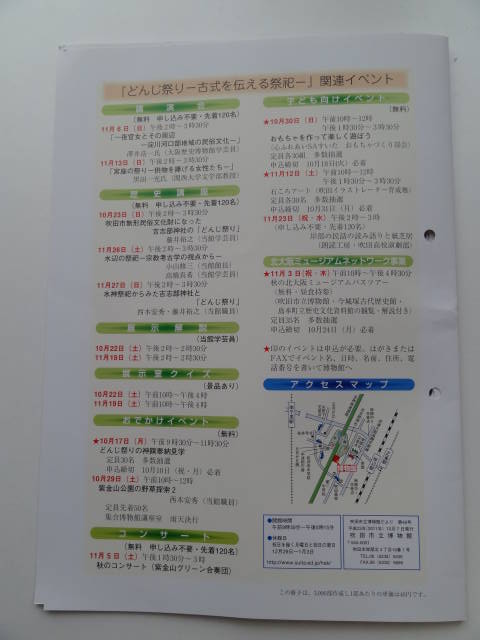 「どんじ祭り－古式を伝える祭祀－」関連イベント
講演会
(無料 申し込み不要・先着120名)
11月6日(日) 午後2時～3時30分
「一夜官女とその周辺
－淀川河口部地域の民俗文化－」
澤井浩一氏(大阪歴史博物館学芸員)
11月13日(日) 午後2時～3時30分
「宮座の祭り－供物を捧げる女性たち－」
黒田一充氏(関西大学文学部教授)
歴史講座
(無料 申し込み不要・先着120名)
10月23日(日) 午後2時～3時30分
吹田市無形民俗文化財になった
吉志部神社の「どんじ祭り」
藤井裕之(当館学芸員)
11月26日(土) 午後2時～3時30分
水辺の祭祀－宗教考古学の視点から－
小山修三(当館館長)
高橋真希(当館学芸員)
11月27日(日) 午後2時～3時30分
水神祭祀からみた吉志部神社と
「どんじ祭り」
西本安秀・藤井裕之(当館職員)
展示解説
(当館学芸員)
10月22日(土) 午後2時～2時30分
11月19日(土) 午後2時～2時30分
展示室クイズ
(景品あり)
10月22日(土) 午前10時～午後4時
11月19日(土) 午前10時～午後4時
おでかけイベント
(無料)
★10月17日(月) 午前9時30分～11時30分
どんじ祭りの神饌奉納見学
定員30名 多数抽選
申込締切 10月10日(祝・月)必着
10月29日(土) 午後2時～3時30分
紫金山公園の野草探索2
西本安秀(当館職員)
定員先着50名
集合博物館講座室 雨天決行
コンサート
(無料 申し込み不要・先着120名)
11月5日(土) 午後1時30分～3時
秋のコンサート(紫金山グリーン合奏団)
子ども向けイベント
(無料)
★10月30日(日) 午前10時～12時
午後1時30分～3時30分
おもちゃを作って楽しく遊ぼう
定員各30組 多数抽選
申込締切 10月18日(火)必着
★11月12日(土) 午前10時～12時
石ころアート(吹田イラストレーター育成塾)
定員各30名 多数抽選
申込締切 10月31日(月)必着
11月23日(祝・水) 午後2時～3時
(申し込み不要・先着120名)
岸部の民話の読み語りと紙芝居
(朗読工房・吹田高校演劇部)
北大阪ミュージアムネットワーク事業
★11月3日(祝・木) 午前10時～午後4時30分
秋の北大阪ミュージアムバスツアー
(無料・昼食持参)
(吹田市立博物館・今城塚古代歴史館・
島本町立歴史文化資料館の観覧・解説付き)
定員35名 多数抽選
申込締切 10月24日(月)必着
★印のイベントは申込が必要。はがきまたは
FAXでイベント名、日時、名前、住所、電
話番号を書いて博物館へ
アクセスマップ
●開館時間
午前9時30分～午後5時15分
●休館日
12月29日～1月3日
吹田市立博物館
この冊子は、3,000部作成し1部あたりの単価は40円です。